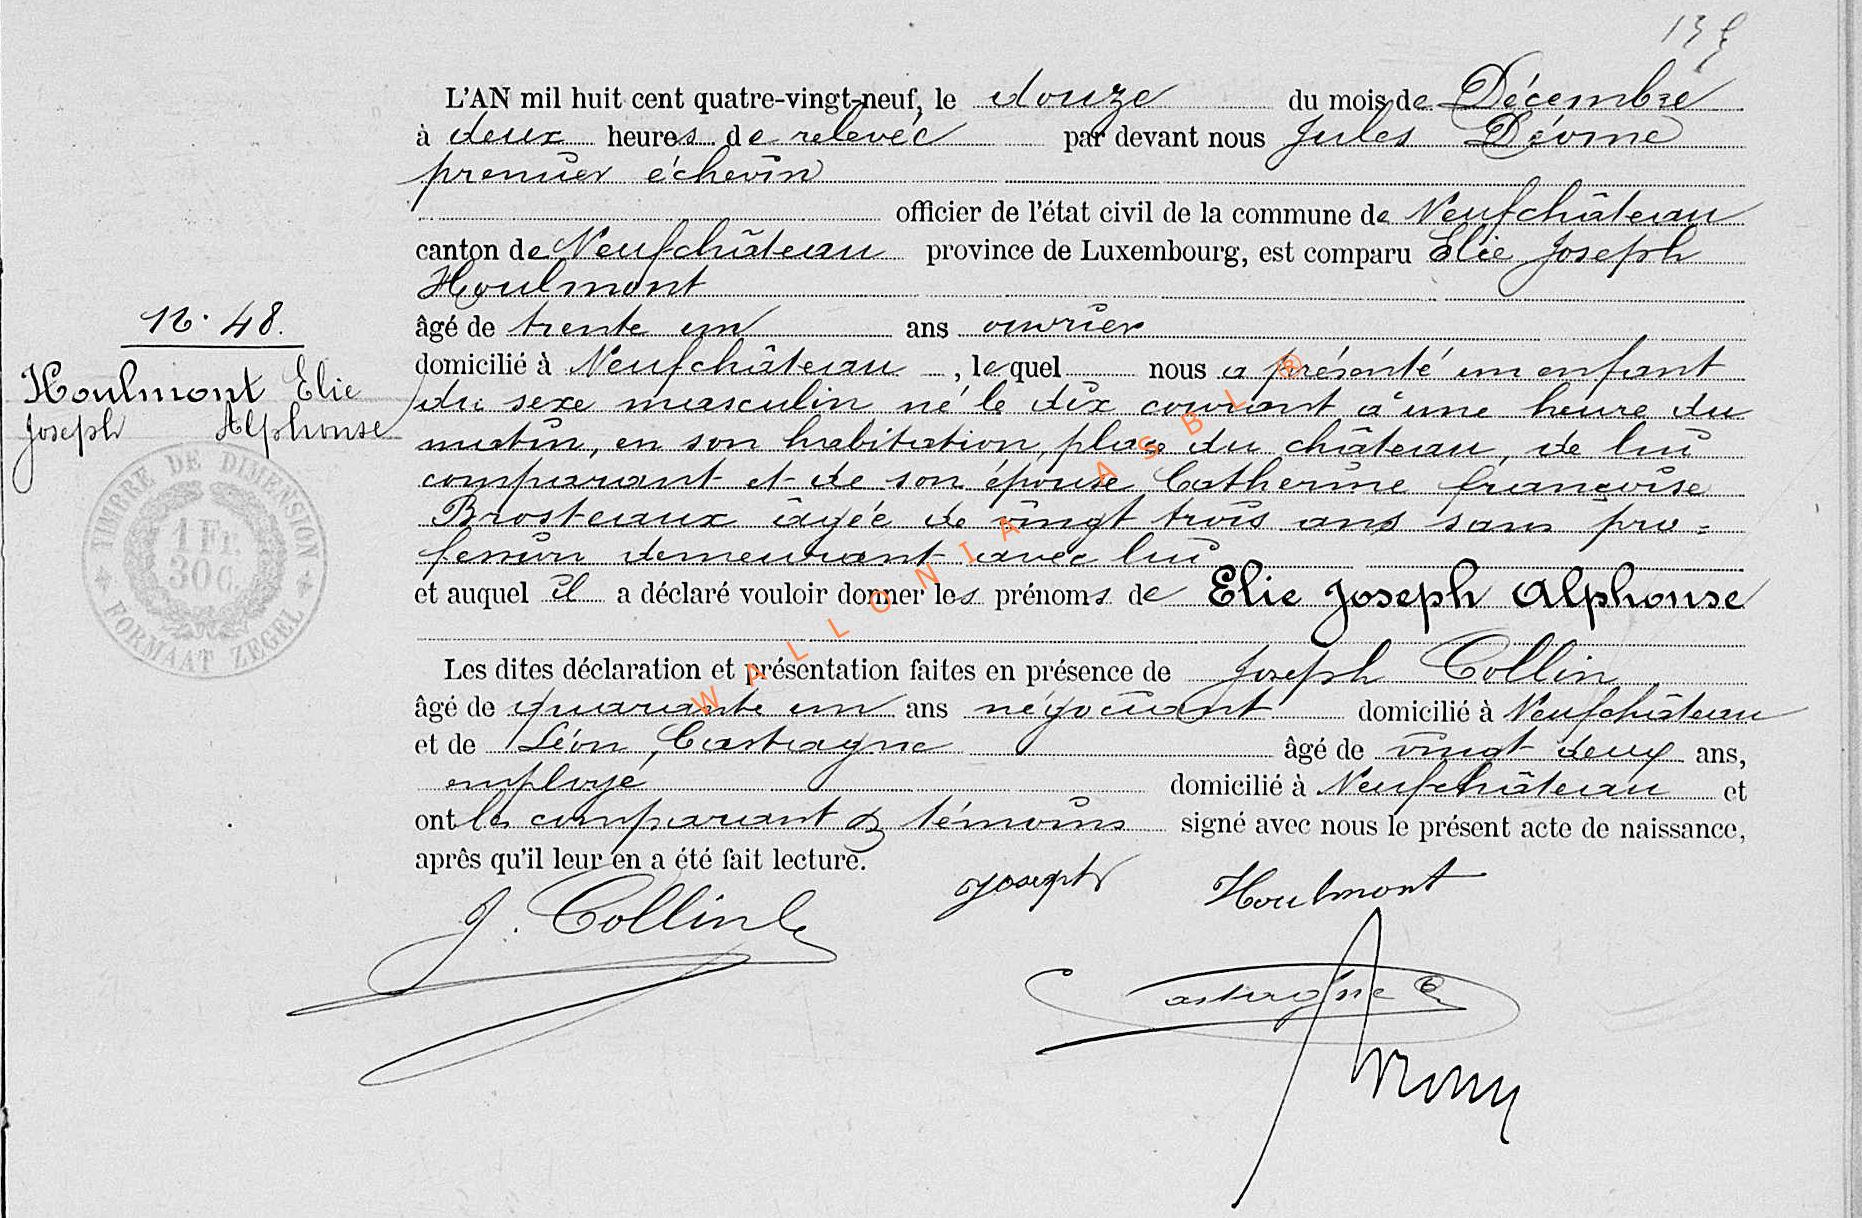 L'AN mil huit cent quatre-vingt-neuf, le douze du mois de Décembre
à deux heures de relevée par devant nous Jules
premier échevin
officier de l'état civil de la commune de Neufchâteau
canton de Neufchâteau province de Luxembourg, est comparu Elie Joseph
Houlmont
âgé de trente un ans ouvrier
domicilié à Neufchâteau, lequel nous a présenté un enfant
du sexe masculin né le dix courant à une heure du
matin, en son habitation, place du château, de lui
comparant et de son épouse Catherine françoise
Brosteaux âgée de vingt trois ans sans pro=
fession demeurant avec lui
et auquel il a déclaré vouloir donner les prénoms de Elie Joseph Alphonse
Les dites déclaration et présentation faites en présence de Joseph Collin
âgé de quarante un ans négociant domicilié à Neufchâteau
et de Léon Castagne âgé de vingt deux ans,
employé domicilié à Neufchâteau et
ont les comparant & témoins signé avec nous le présent acte de naissance,
après qu'il leur en a été fait lecture.
J. Collin
Joseph Houlmont
N. 48.
Houlmont Elie
Joseph Alphonse
TIMBRE DE DIMENSION
1 Fr.
30 C.
FORMAAT ZEGEL
WALLONIA ASBL ®